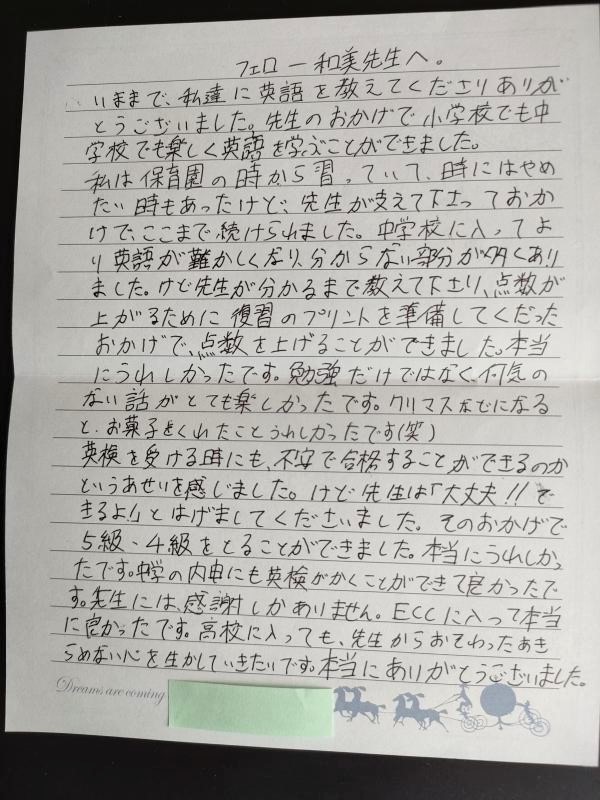 フェロー和美先生へ。
いままで、私達に英語を教えてくださりありが
とうございました。先生のおかげで小学校でも中
学校でも楽しく英語を学ぶことができました。
私は保育園の時から習っていて、時にはやめ
たい時もあったけど、先生が支えて下さっておか
げで、ここまで続けられました。中学校に入ってよ
り英語が難かしくなり、分からない部分が多くあり
ました。けど先生が分かるまで教えて下さり、点数が
上がるために復習のプリントを準備してくだった
おかげで、点数を上げることができました。本当
にうれしかったです。勉強だけではなく、何気の
ない話がとても楽しかったです。クリマスなどになる
と、お菓子をくれたことうれしかったです(笑)
英検を受ける時にも、不安で合格することができるのか
というあせいを感じました。けど先生は「大丈夫!!で
きるよ!」とはげましてくださいました。そのおかげで
5級・4級をとることができました。本当にうれしかっ
たです。中学の内申にも英検がかくことができて良かったで
す。先生には、感謝しかありません。ECCに入って本当
に良かったです。高校に入っても、先生からおそわったあき
らめない心を生かしていきたいです。本当にありがとうございました。
Dreams are coming